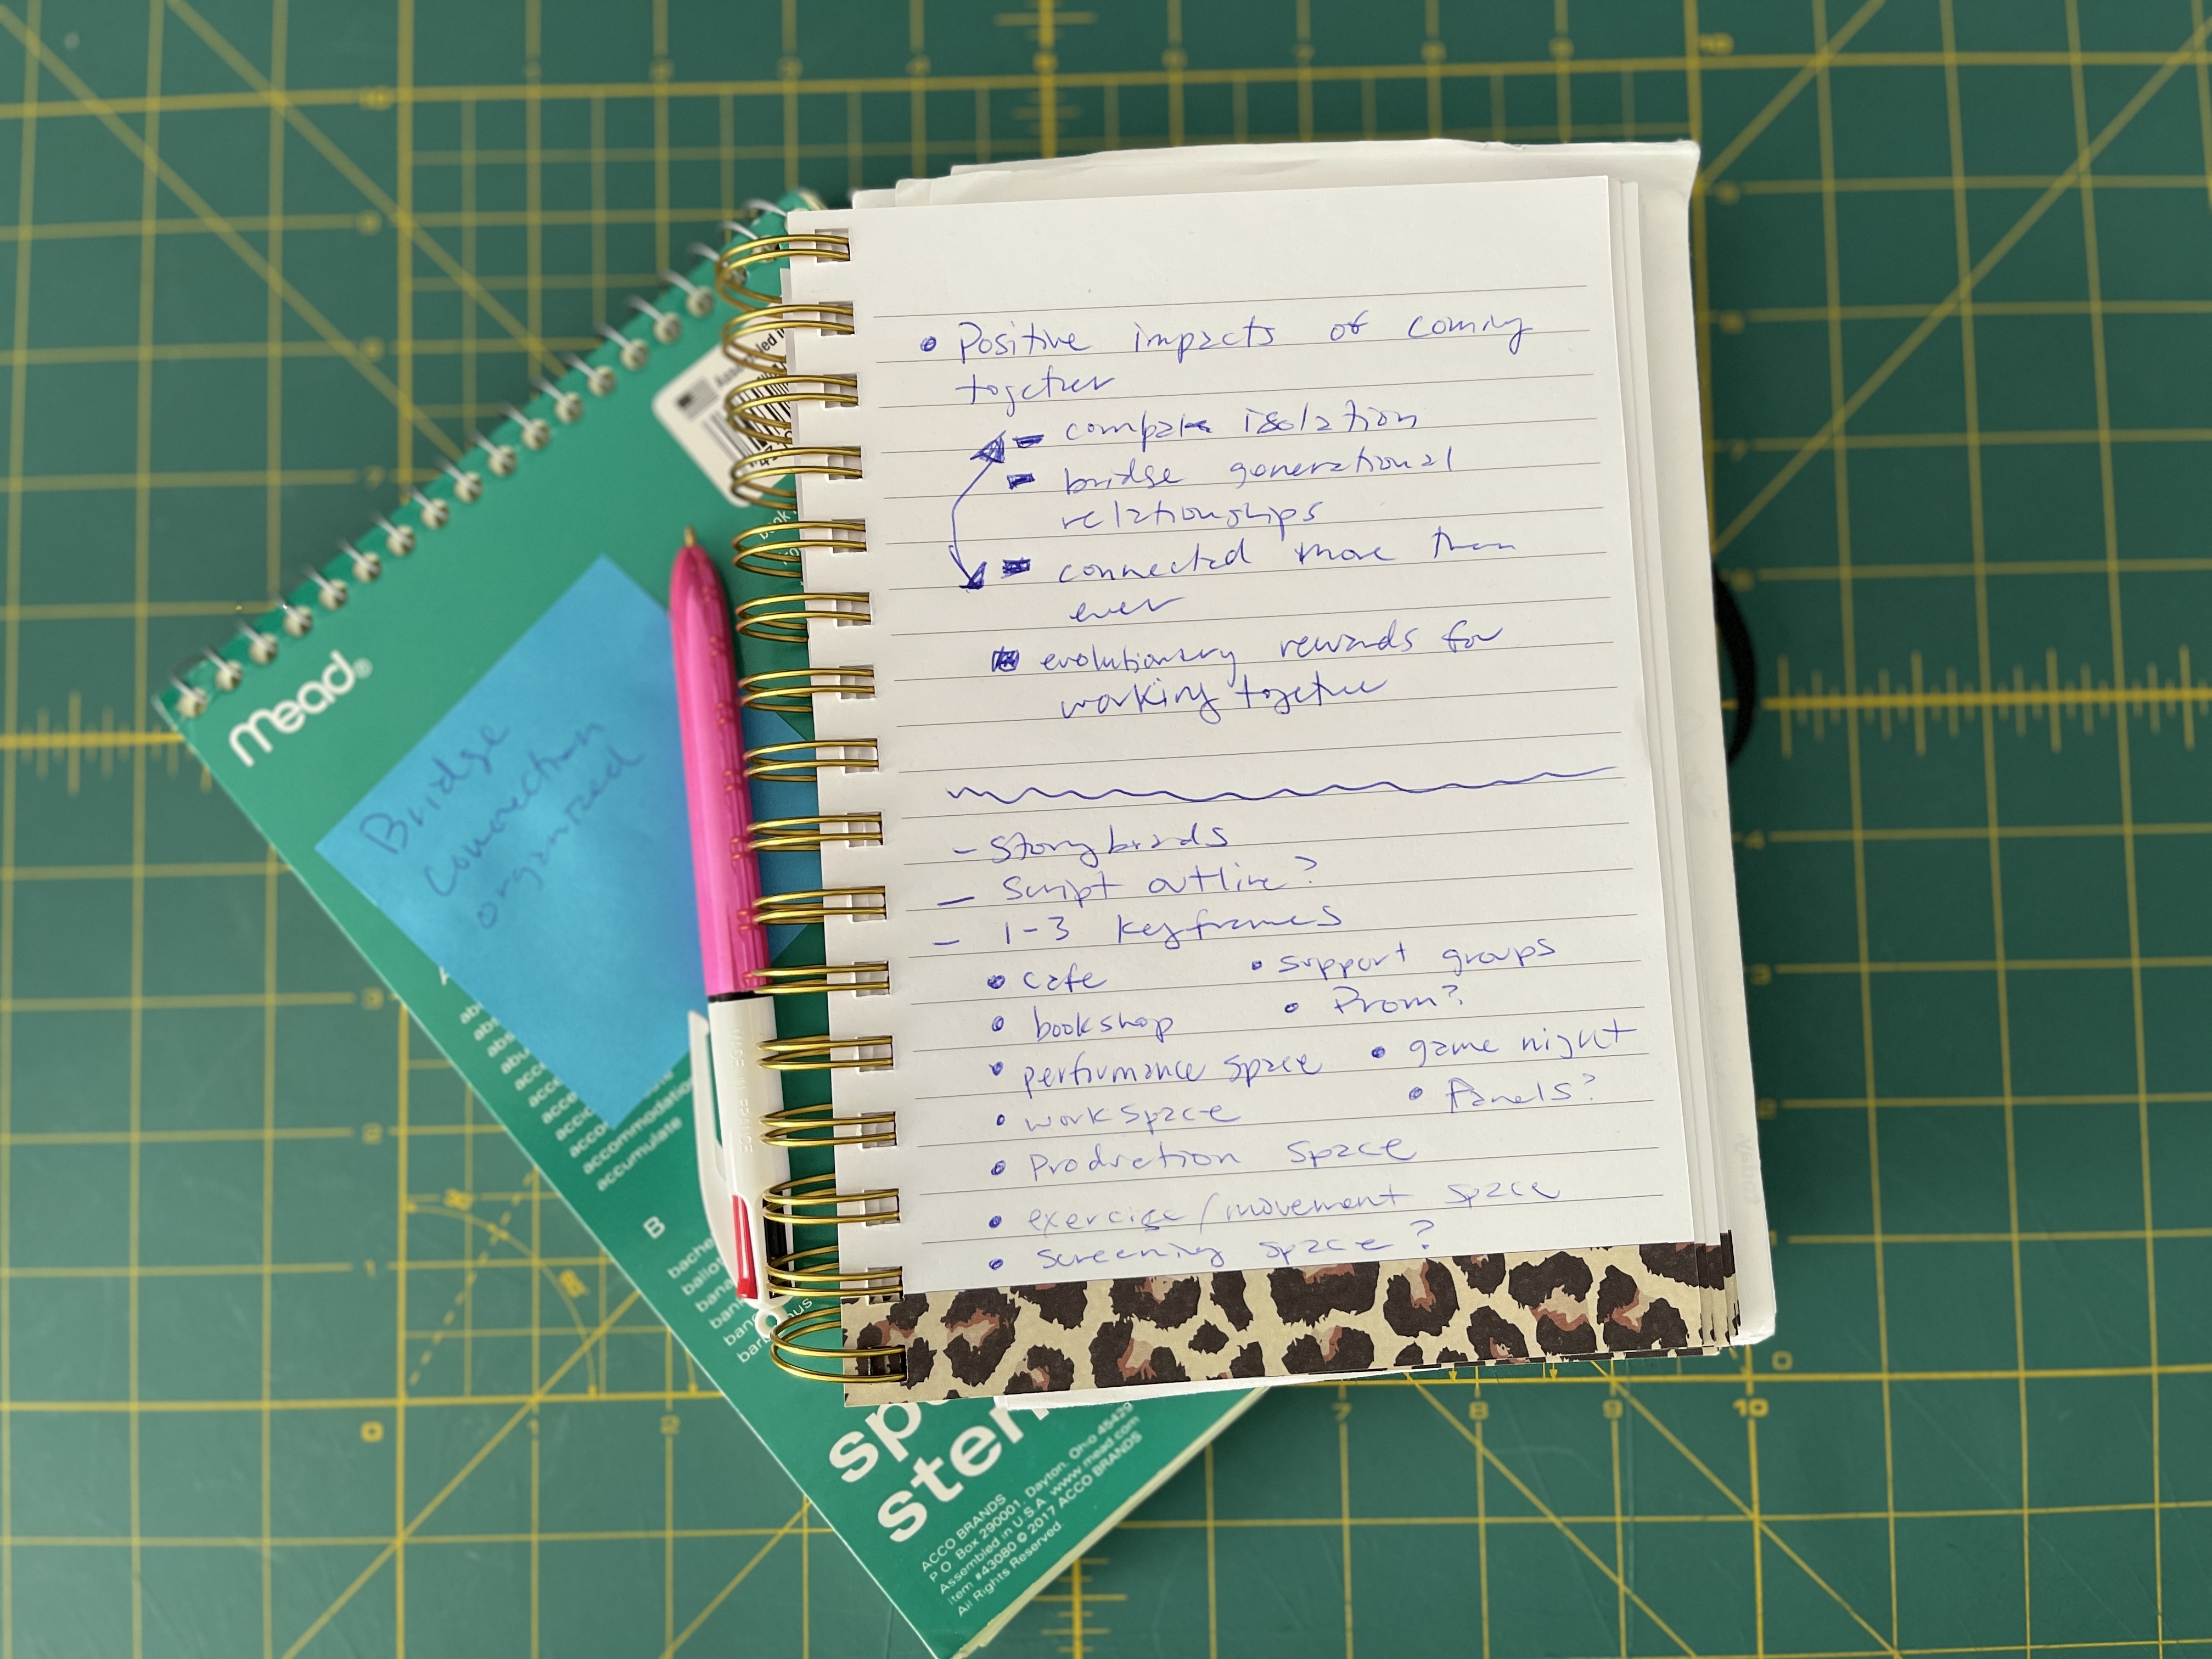 • Positive impacts of coming
together
- compare isolation
- bridge generational
relationships
- connected more than
ever
evolutionary rewards for
working together
- Storyboards
- Script outline?
- 1-3 keyframes
• cafe
• bookshop
• performance space
• workspace
• Production space
• exercise/movement space
• screening space?
• support groups
• Prom?
• game night
• Panels?
mead®
Bridge
connection
organized
accommodation
accumulate
B
ACCO BRANDS
P.O. Box 290001, Dayton, Ohio 45429
Assembled in U.S.A. www.mead.com
Item #43080 © 2017 ACCO BRANDS
All Rights Reserved.
10
3
2
1
0
1
2
7
8
9
10
0